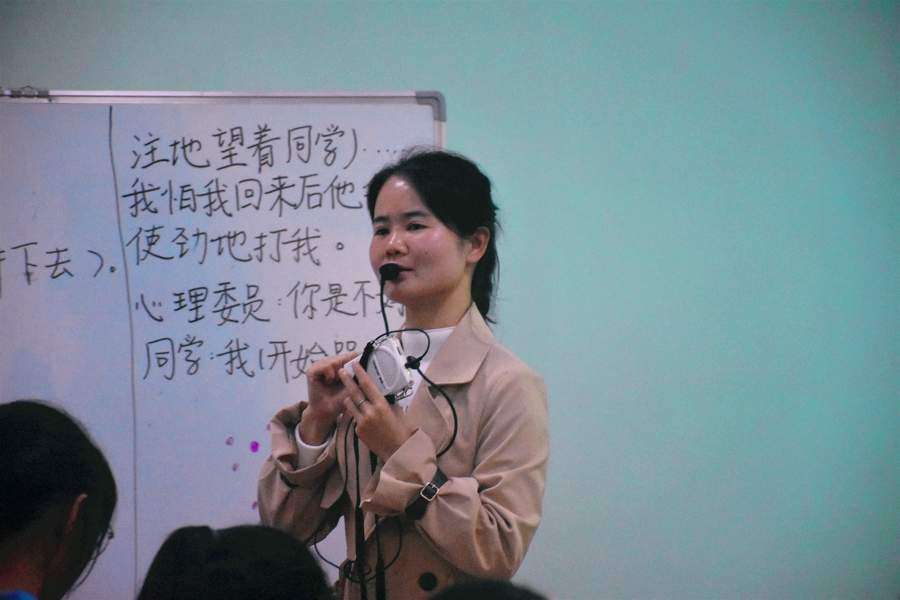 下去)。
注地望着同学).....
我怕我回来后他
使劲地打我。
心理委员:你是不
同学:我(开始哭